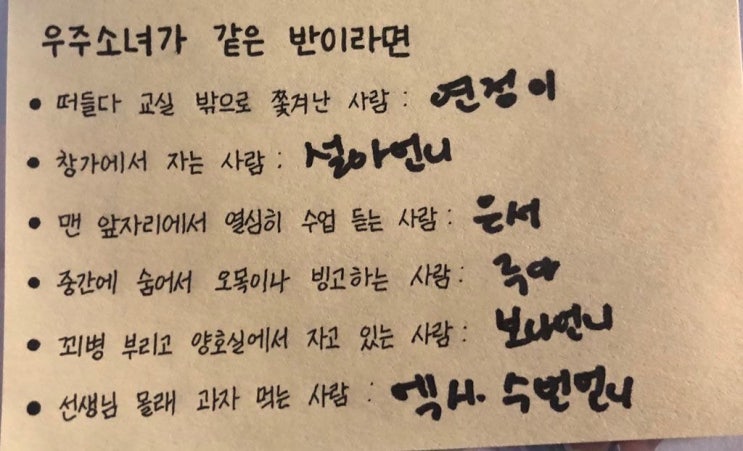 우주소녀가 같은 반이라면
• 떠들다 교실 밖으로 쫓겨난 사람 : 연정이
• 창가에서 자는 사람 : 설아언니
• 맨 앞자리에서 열심히 수업 듣는 사람 : 은서
• 중간에 숨어서 오목이나 빙고하는 사람 : 루다
• 꾀병 부리고 양호실에서 자고 있는 사람 : 보나언니
• 선생님 몰래 과자 먹는 사람 : 엑시. 수빈언니